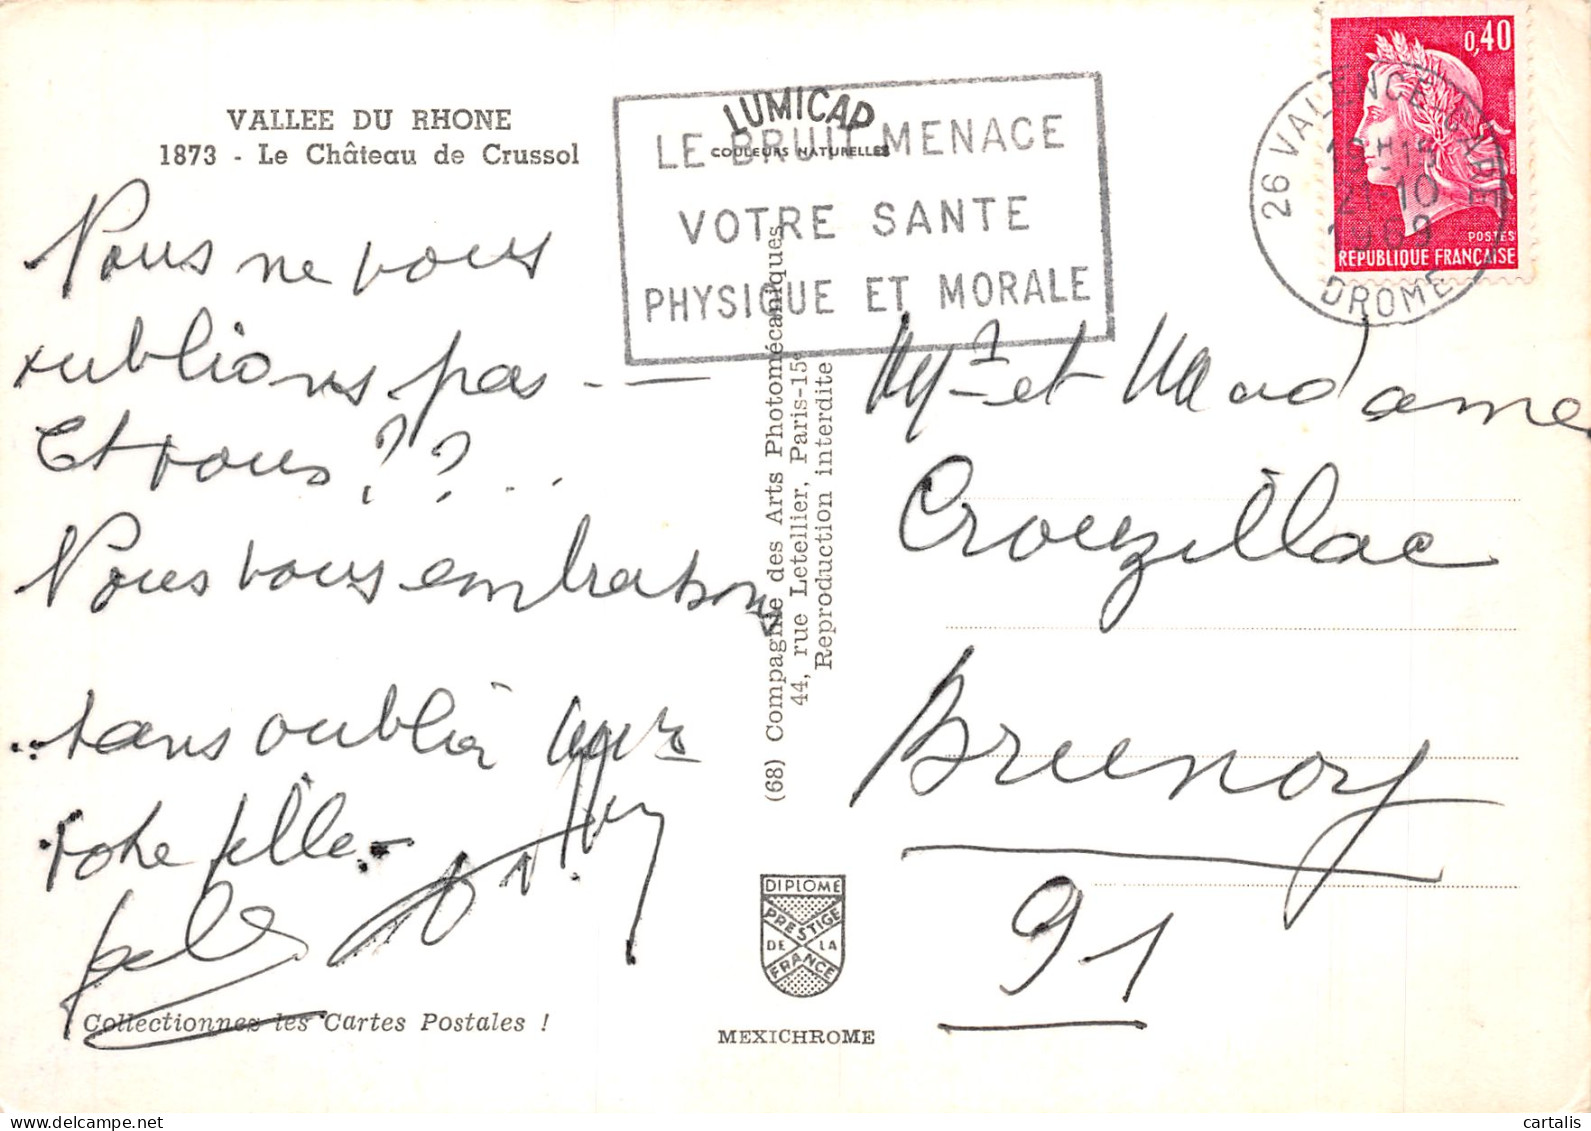 VALLEE DU RHONE
1873 - Le Château de Crussol
LUMICAP
COULEURS NATURELLES
LE BRUIT MENACE
VOTRE SANTE
PHYSIQUE ET MORALE
0,40
POSTES
REPUBLIQUE FRANÇAISE
26 VALENCE-GARE
19H15
21-10
1969
DROME
Nous ne vous
oublions pas - —
Et vous ? ? ...
Nous vous embrassons
.. sans oublier
votre fille -
Mr et Madame
Crouzillac
Brunoy
91
(68) Compagnie des Arts Photomécaniques,
44, rue Letellier, Paris-15e
Reproduction interdite
DIPLOME
PRESTIGE
DE LA
FRANCE
Collectionnez les Cartes Postales !
MEXICHROME
cartalis